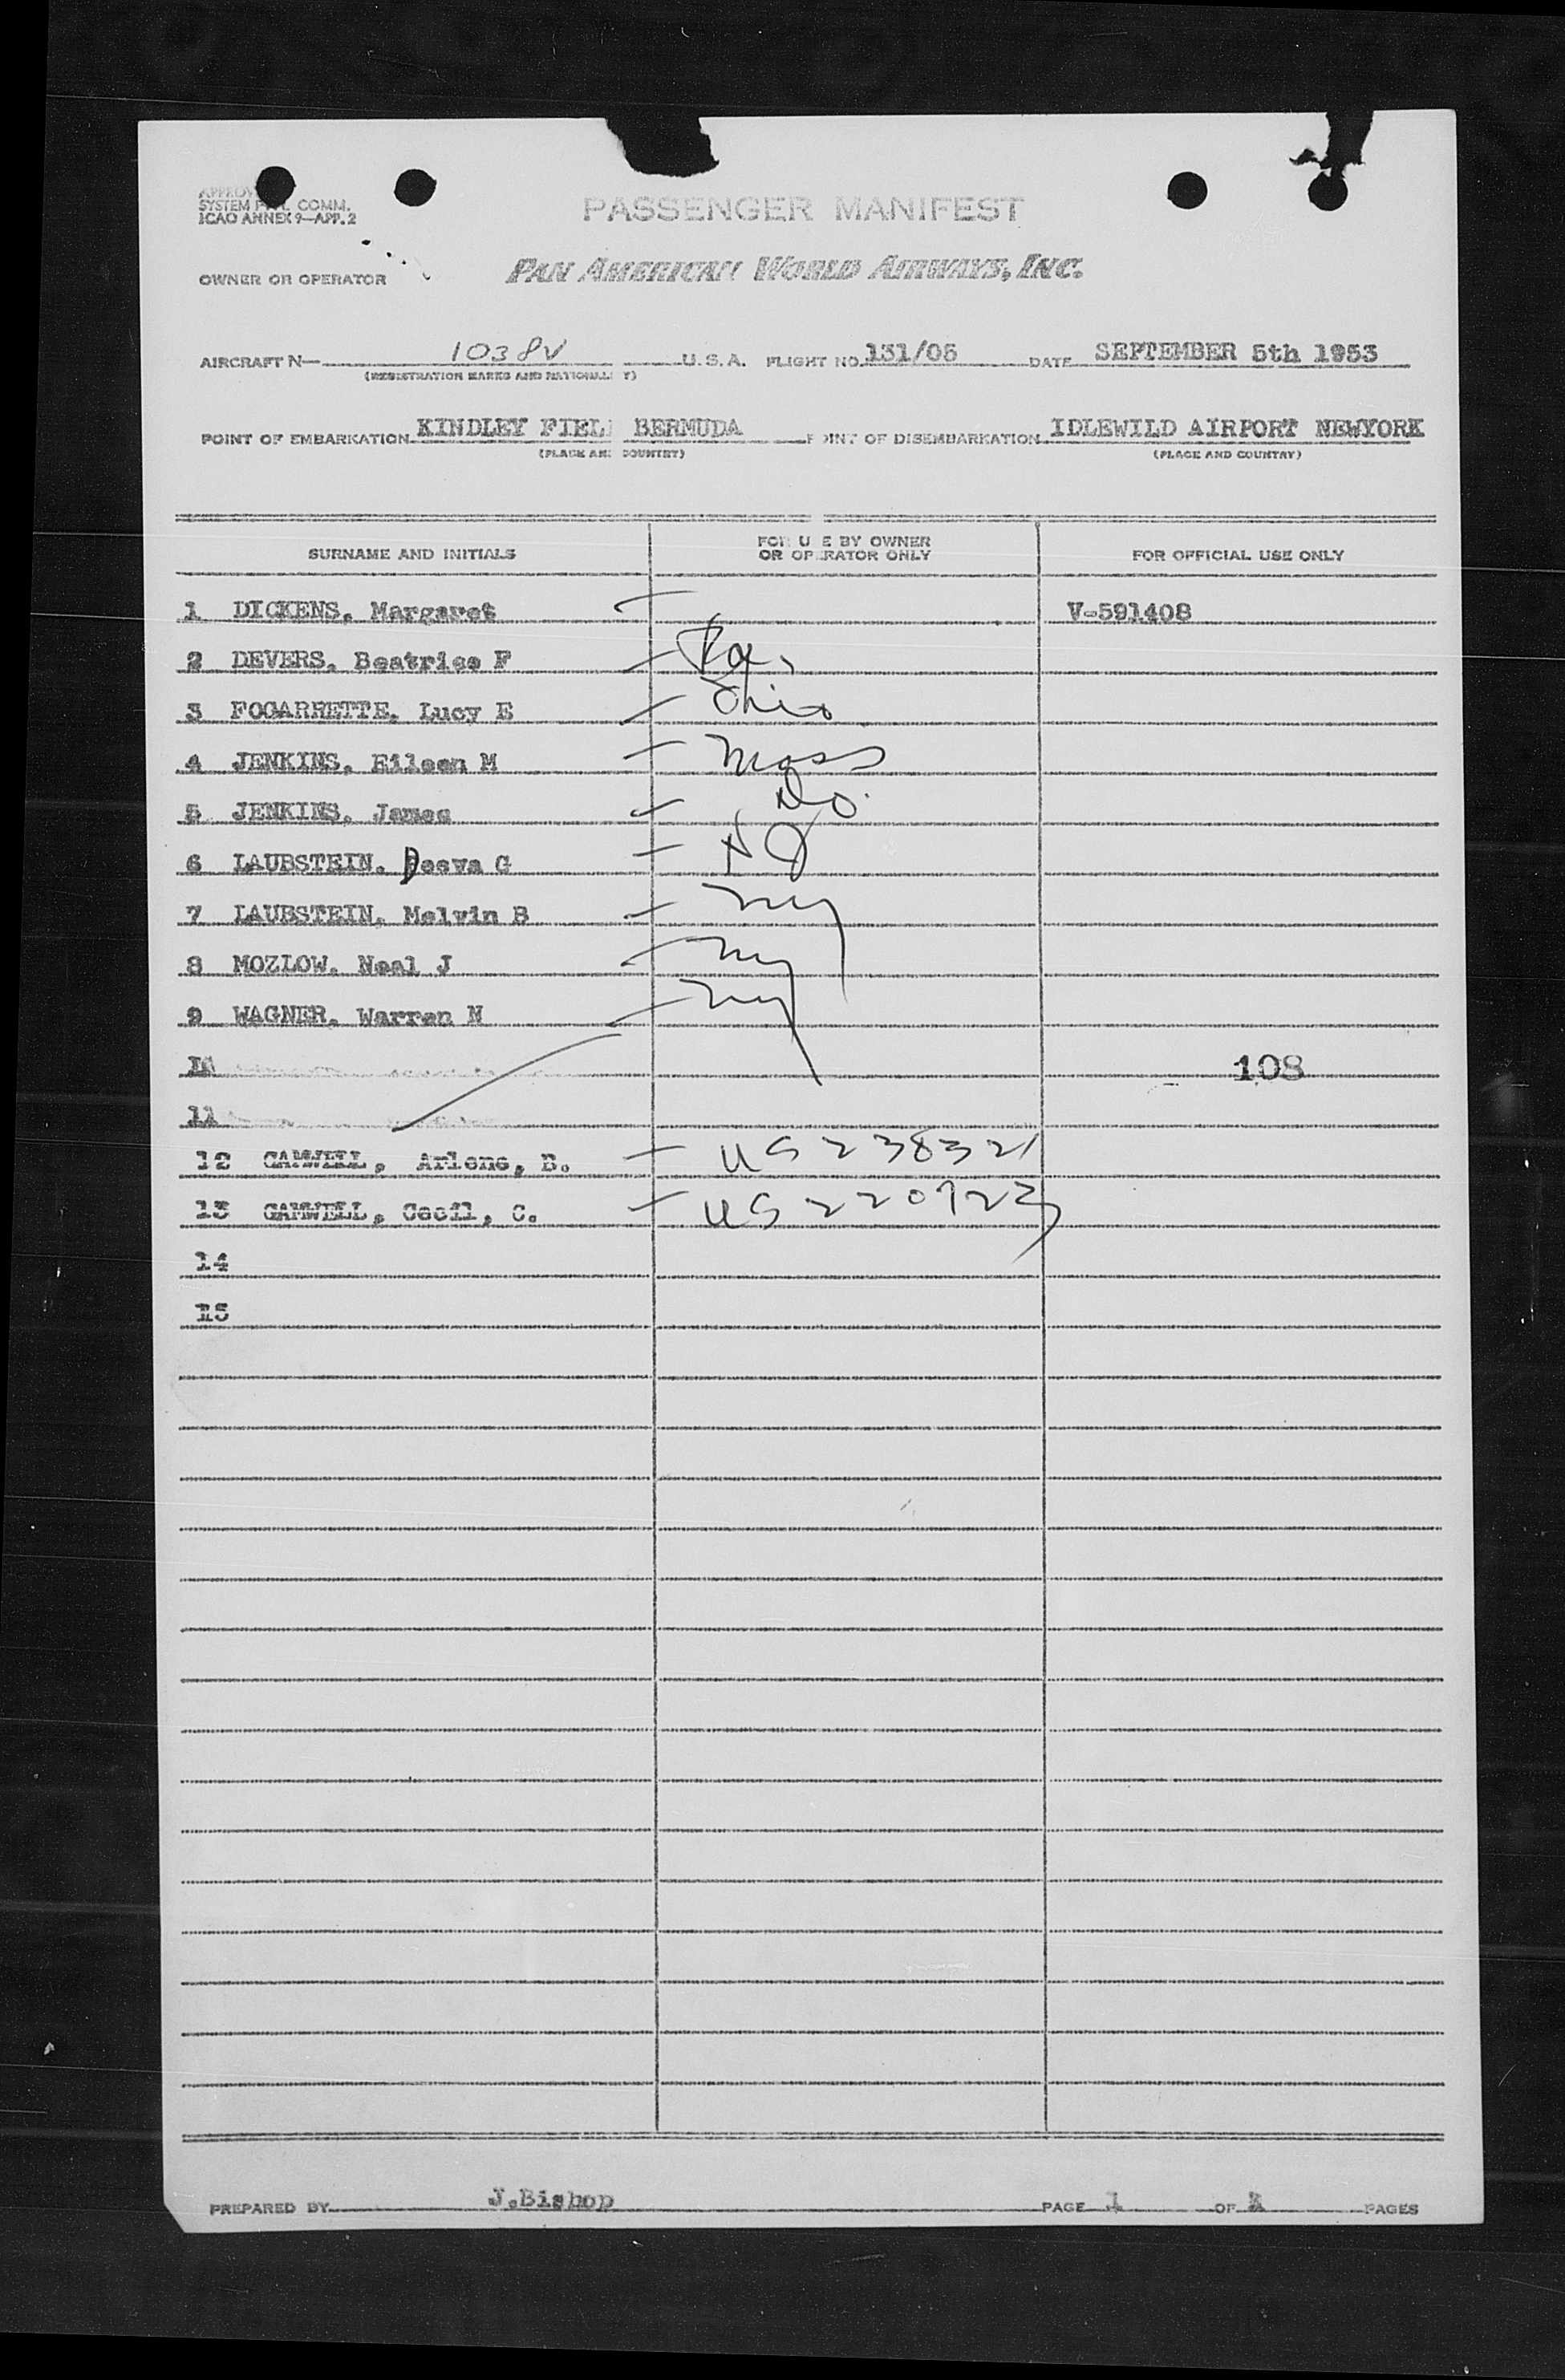 SYSTEM COMM.
ICAO ANNEX 9—APP. 2
PASSENGER MANIFEST
OWNER OR OPERATOR PAN AMERICAN WORLD AIRWAYS, INC.
AIRCRAFT N— 1038V U.S.A. FLIGHT NO. 131/05 DATE SEPTEMBER 5th 1953
(REGISTRATION MARKS AND NATIONALITY)
POINT OF EMBARKATION KINDLEY FIELD BERMUDA POINT OF DISEMBARKATION IDLEWILD AIRPORT NEWYORK
(PLACE AND COUNTRY) (PLACE AND COUNTRY)
SURNAME AND INITIALS FOR USE BY OWNER OR OPERATOR ONLY FOR OFFICIAL USE ONLY
1 DICKENS, Margaret V-591408
2 DEVERS, Beatrice F Pa.
3 FOGARRETTE, Lucy E Ohio
4 JENKINS, Eileen M Mass
5 JENKINS, James Do.
6 LAUBSTEIN, G NJ
7 LAUBSTEIN, Melvin B NY
8 MOZLOW, Neal J NY
9 WAGNER, Warren N NY
10 108
11
12 GAMWELL, Arlene, B. US 238321
13 GAMWELL, Cecil, C. US 220723
14
15
PREPARED BY J.Bishop PAGE 1 OF PAGES